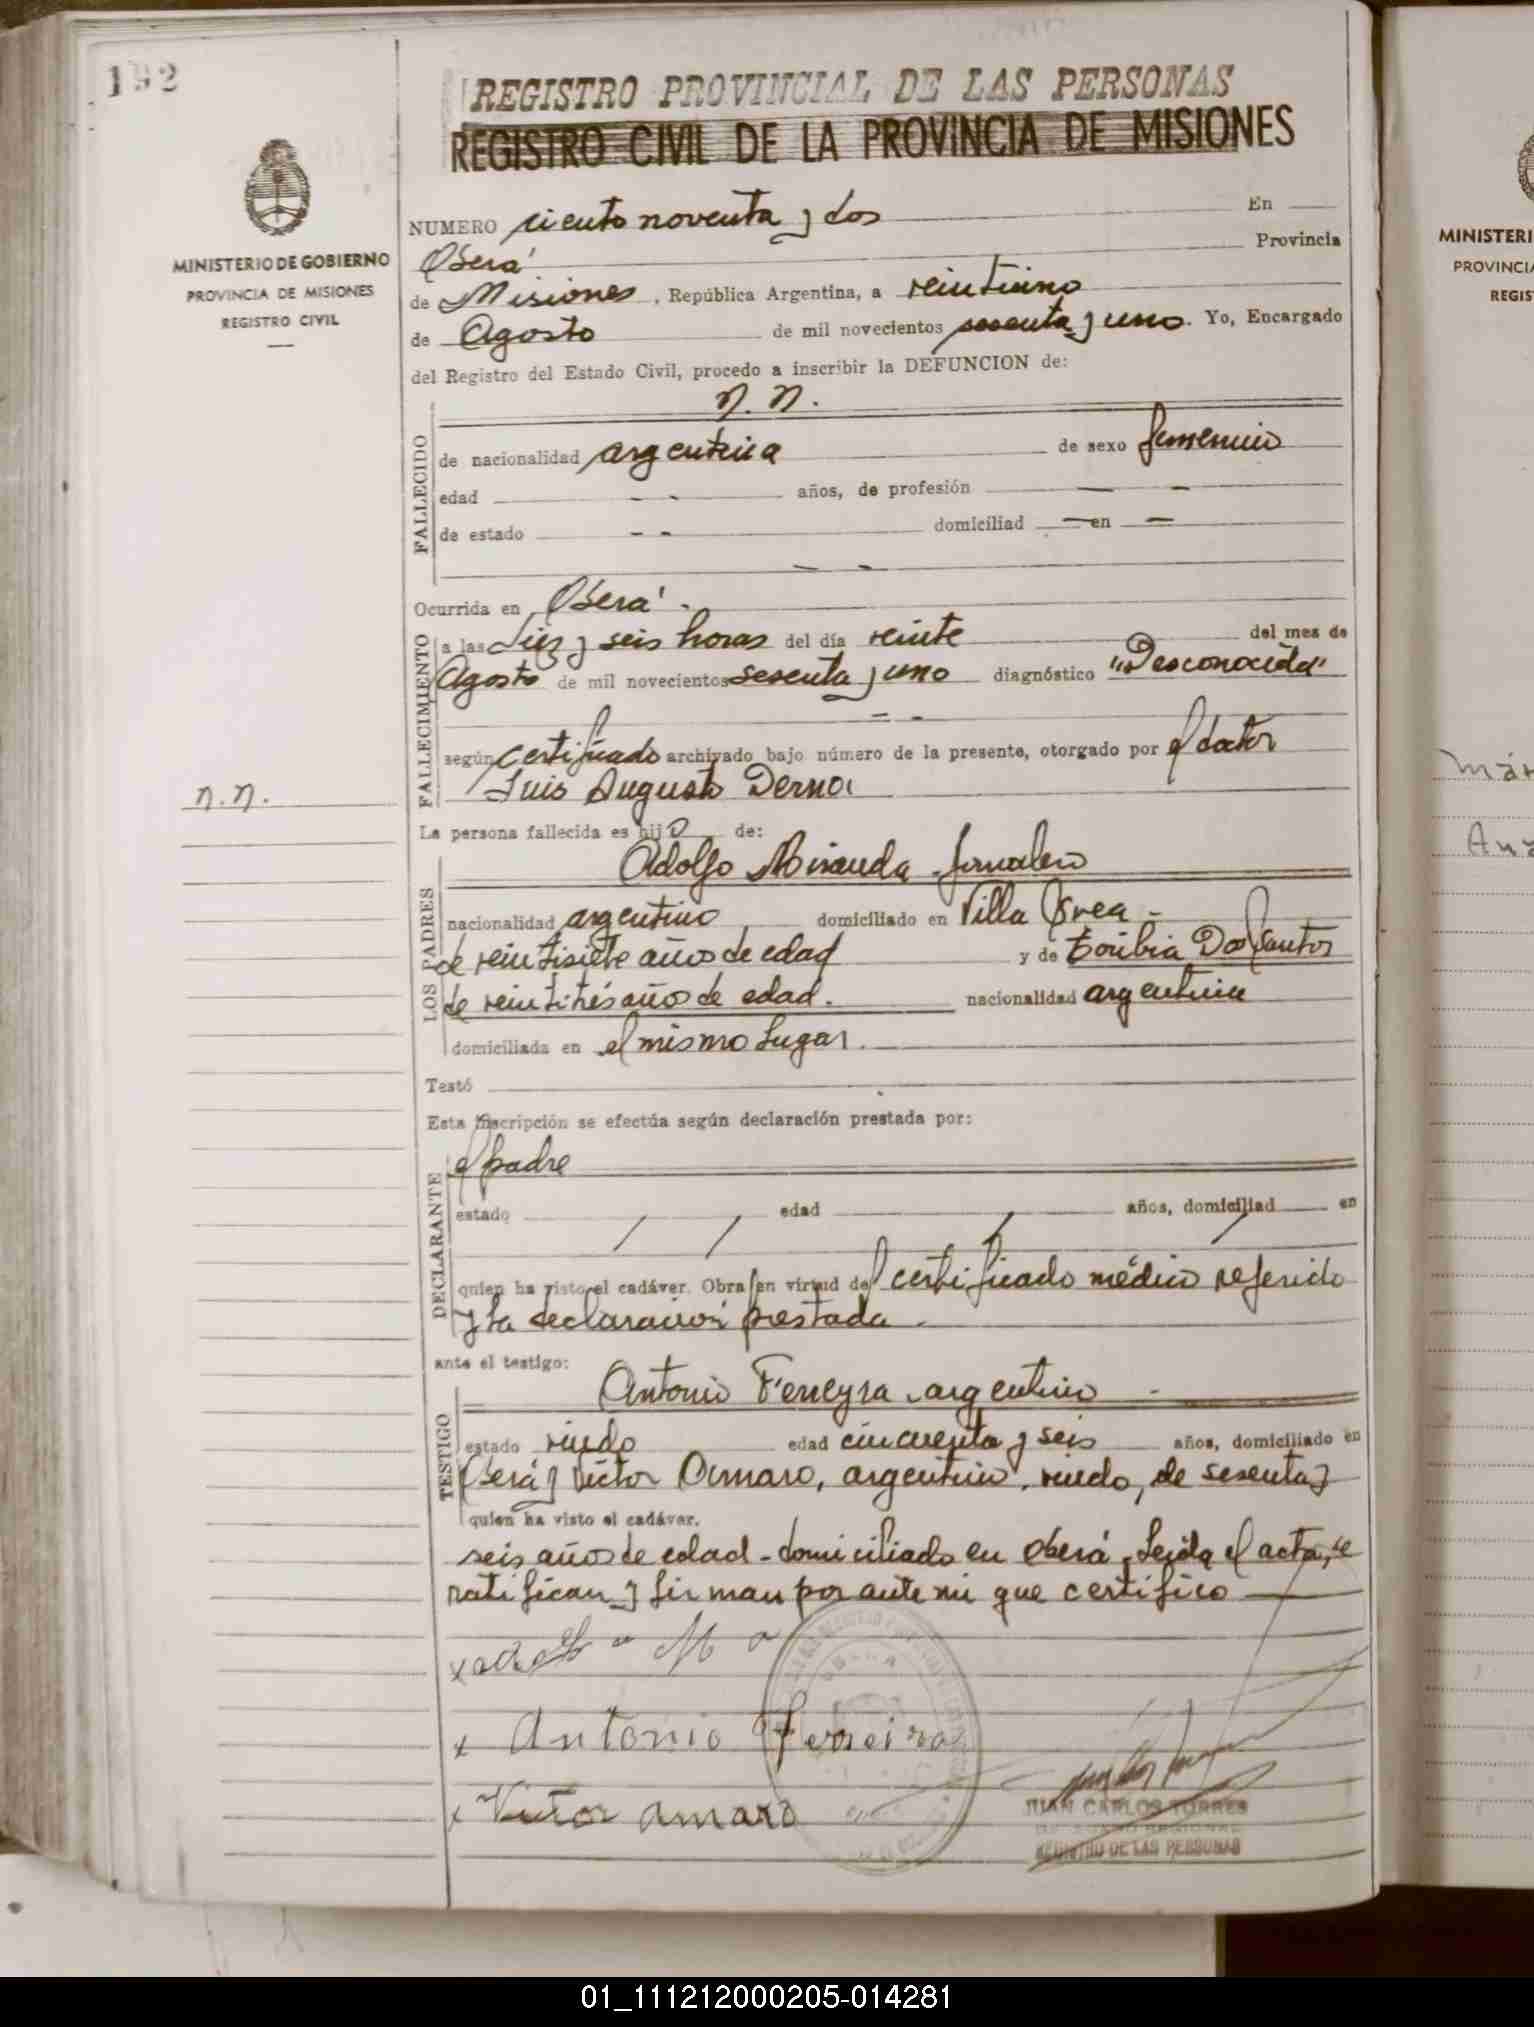 192
REGISTRO PROVINCIAL DE LAS PERSONAS
REGISTRO CIVIL DE LA PROVINCIA DE MISIONES
MINISTERIO DE GOBIERNO
PROVINCIA DE MISIONES
REGISTRO CIVIL
NUMERO ciento noventa y dos En
Oberá Provincia
de Misiones, República Argentina, a veintiuno
de Agosto de mil novecientos sesenta y uno. Yo, Encargado
del Registro del Estado Civil, procedo a inscribir la DEFUNCION de:
FALLECIDO
N. N.
de nacionalidad argentina de sexo femenino
edad - - años, de profesión - -
de estado - - domiciliad - en -
- -
Ocurrida en Oberá.
FALLECIMIENTO
a las diez y seis horas del día veinte del mes de
Agosto de mil novecientos sesenta y uno diagnóstico "Desconocida"
- -
según certificado archivado bajo número de la presente, otorgado por el doctor
Luis Augusto Derna
n.n.
La persona fallecida es hijo de:
LOS PADRES
Adolfo Miranda - Jornalero
nacionalidad argentino domiciliado en Villa Svea -
de veintisiete años de edad y de Toribia Dos Santos
de veintitrés años de edad. nacionalidad argentina
domiciliada en el mismo lugar.
Testó
Esta inscripción se efectúa según declaración prestada por:
DECLARANTE
el padre
estado edad años, domiciliad en
quien ha visto el cadáver. Obra en virtud del certificado médico referido
y la declaración prestada.
ante el testigo:
TESTIGO
Antonio Ferreyra - argentino -
estado viudo edad cincuenta y seis años, domiciliado en
Oberá y Víctor Amaro, argentino, viudo, de sesenta y
quien ha visto el cadáver.
seis años de edad - domiciliado en Oberá. Leída el acta, se
ratifican y firman por ante mi que certifico
x Antonio Ferreira
x Victor amaro
OBERA
JUAN CARLOS TORRES
DELEGADO REGIONAL
REGISTRO DE LAS PERSONAS
MINISTERI
PROVINCIA
REGIS
01_111212000205-014281